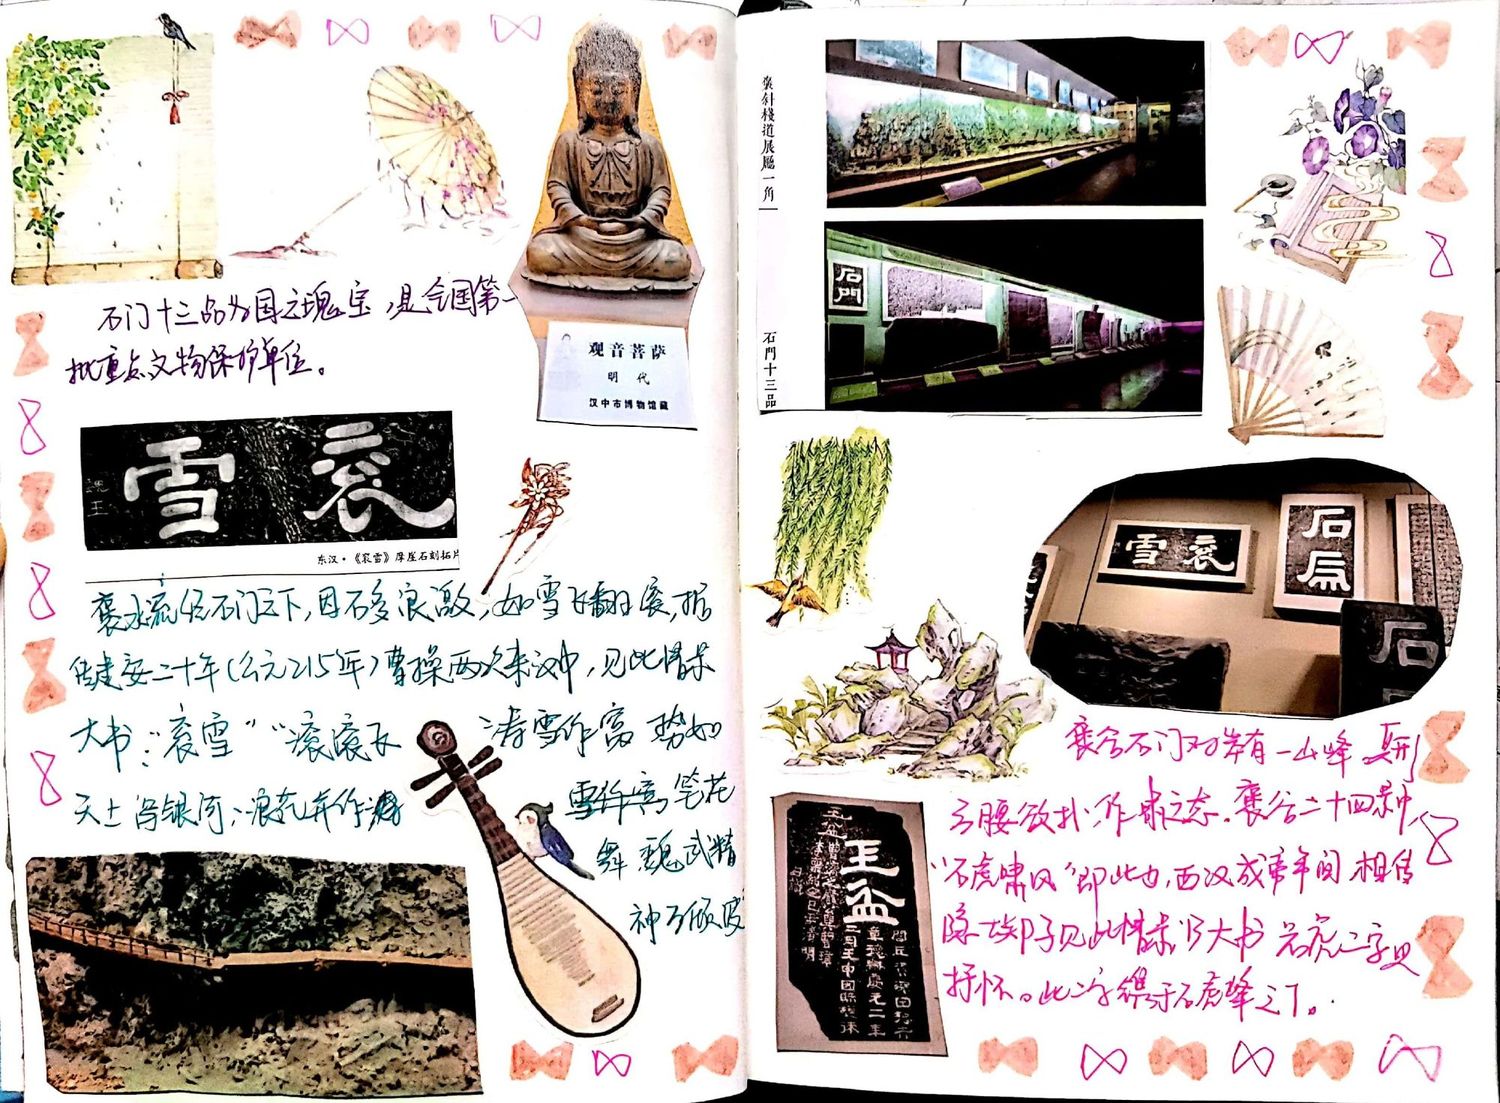 石门十三品为国之瑰宝，是全国第一
批重点文物保护单位。
观音菩萨
明 代
汉中市博物馆藏
雪 衮
东汉·《衮雪》摩崖石刻拓片
褒水流经石门之下，因石多浪激，如雪飞翻滚，据
传建安二十年（公元215年）曹操两次来汉中，见此情景
大书：“衮雪”“滚滚飞
涛雪作窝 势如
天上泻银河，浪花并作
雪作窝 笔花
舞 魏武精
神万顷波
褒斜棧道展廳一角
石門十三品
石門
雪 衮
石虎
石
褒谷石门对岸有一山峰 其形
弓腰欲扑，作肃之态。褒谷二十四景中
“石虎啸风”即此也，西汉成帝年间 相传
隐士郑子见此情景 乃大书 石虎二字以
抒怀。此二字镌于石虎峰之下。
玉盆